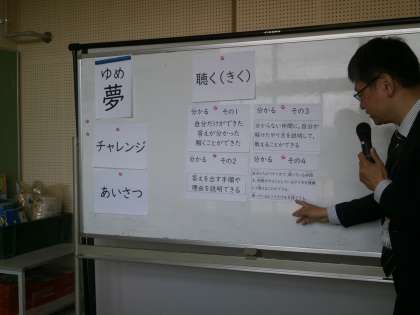 ゆめ
夢
チャレンジ
あいさつ
聴く(きく)
分かる その1
自分だけができた
答えが分かった
解くことができた
分かる その2
答えを出す手順や
理由を説明できる
分かる その3
分からない仲間に、自分が
解けたやり方を説明して、
教えることができる
分かる その4